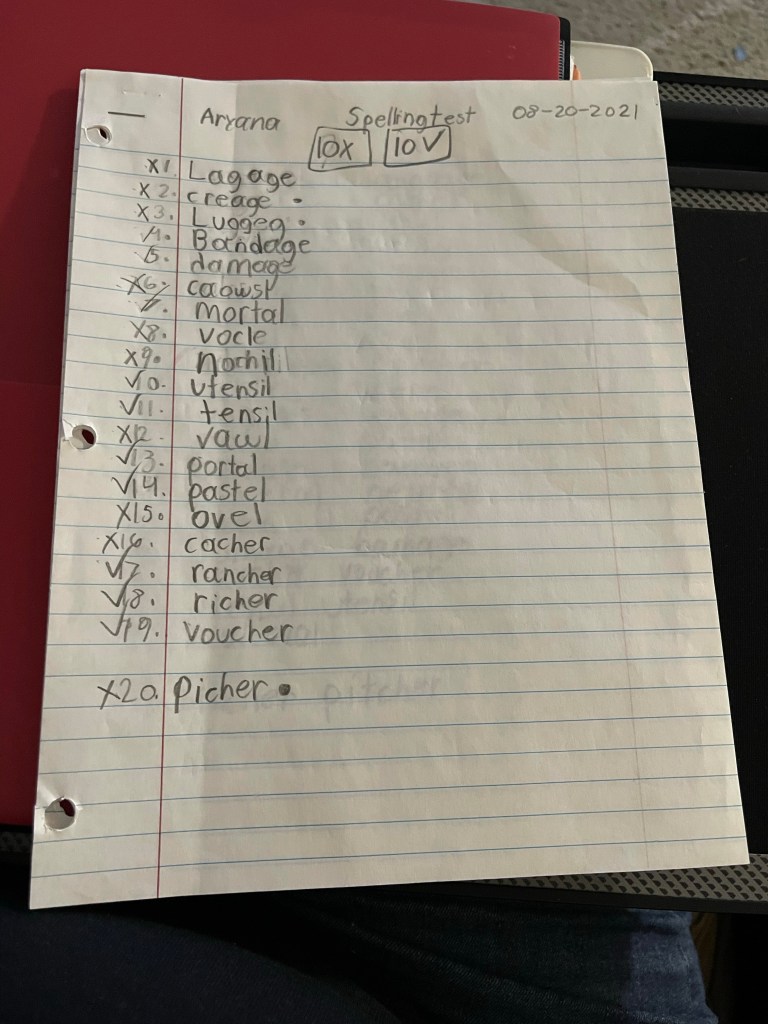 Aryana Spellingtest 08-20-2021
10X 10V
X1. Lagage
X2. creage .
X3. Luggeg .
√4. Bandage
√5. damage
X6. cabwsl
√7. mortal
X8. vocle
X9. Nochil
√10. utensil
√11. tensil
X12. vawl
√13. portal
√14. pastel
X15. ovel
X16. cacher
√17. rancher
√18. richer
√19. voucher
X20. Picher .